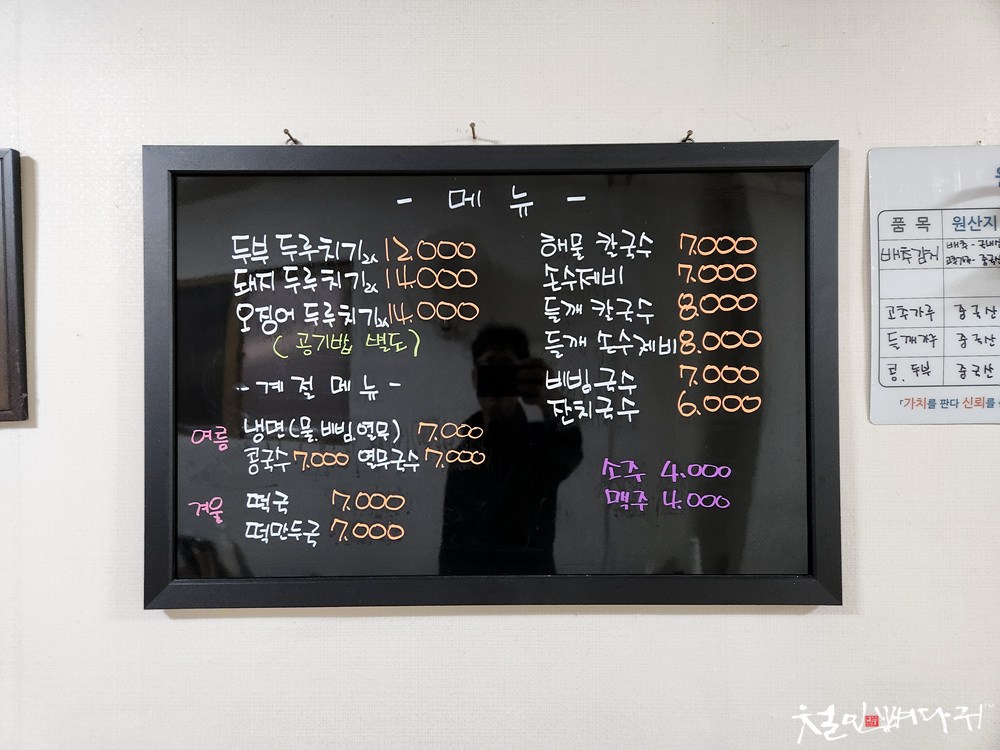 - 메 뉴 -
두부 두루치기 12.000
돼지 두루치기 14.000
오징어 두루치기 14.000
( 공기밥 별도 )
- 계 절 메 뉴 -
여름 냉면(물.비빔.열무) 7.000
콩국수 7.000 열무국수 7.000
겨울 떡국 7.000
떡만두국 7.000
해물 칼국수 7.000
손수제비 7.000
들깨 칼국수 8.000
들깨 손수제비 8.000
비빔국수 7.000
잔치국수 6.000
소주 4.000
맥주 4.000
품 목 원산지
배추김치 배추-
고추가루 중국산
들깨가루 중국산
콩. 두부 중국산
「가치를 판다 신뢰를
철민뼈다귀